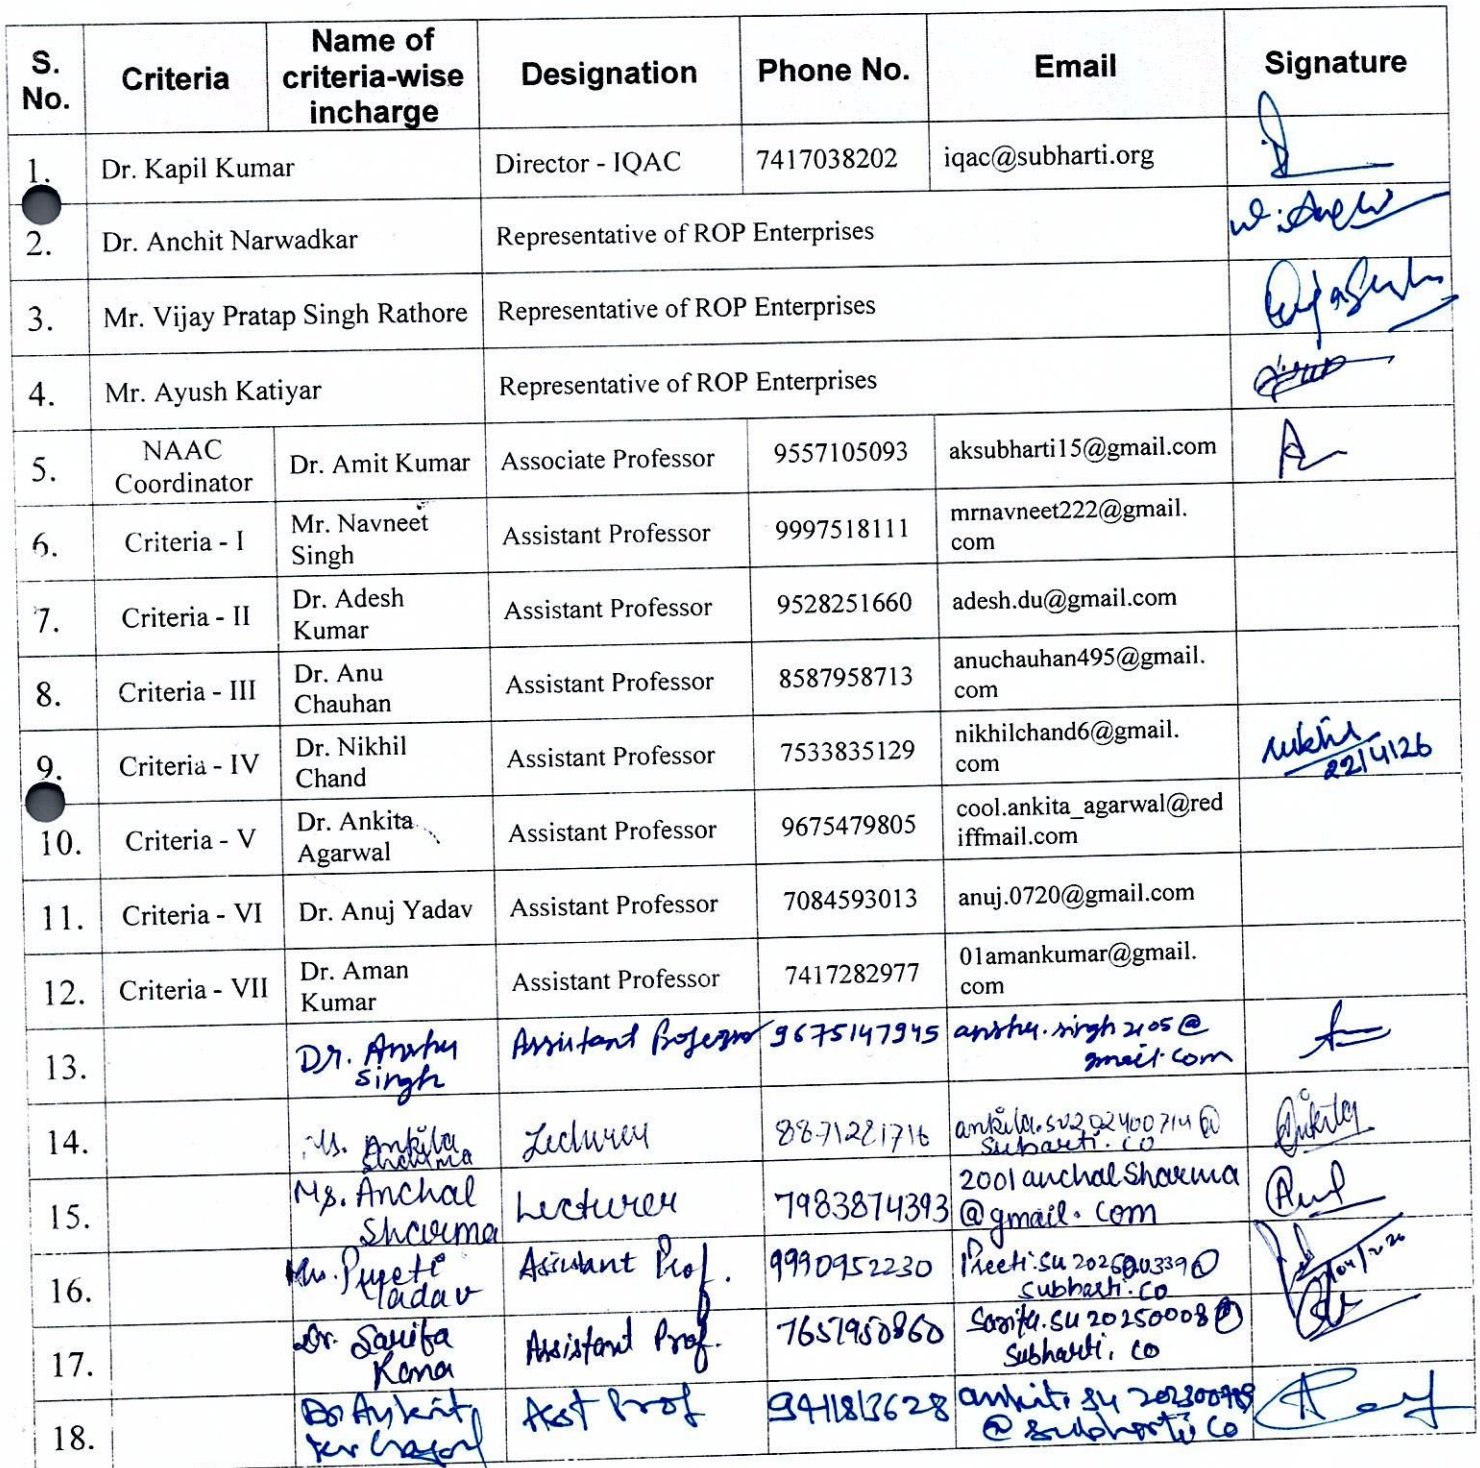 S. No. Criteria Name of criteria-wise incharge Designation Phone No. Email Signature
1. Dr. Kapil Kumar Director - IQAC 7417038202 iqac@subharti.org
2. Dr. Anchit Narwadkar Representative of ROP Enterprises
3. Mr. Vijay Pratap Singh Rathore Representative of ROP Enterprises
4. Mr. Ayush Katiyar Representative of ROP Enterprises
5. NAAC Coordinator Dr. Amit Kumar Associate Professor 9557105093 aksubharti15@gmail.com
6. Criteria - I Mr. Navneet Singh Assistant Professor 9997518111 mrnavneet222@gmail.com
7. Criteria - II Dr. Adesh Kumar Assistant Professor 9528251660 adesh.du@gmail.com
8. Criteria - III Dr. Anu Chauhan Assistant Professor 8587958713 anuchauhan495@gmail.com
9. Criteria - IV Dr. Nikhil Chand Assistant Professor 7533835129 nikhilchand6@gmail.com Nikhil 22/4/26
10. Criteria - V Dr. Ankita Agarwal Assistant Professor 9675479805 cool.ankita_agarwal@rediffmail.com
11. Criteria - VI Dr. Anuj Yadav Assistant Professor 7084593013 anuj.0720@gmail.com
12. Criteria - VII Dr. Aman Kumar Assistant Professor 7417282977 01amankumar@gmail.com
13. Dr. Anshu Singh Assistant Professor 9675147945 anshu.singh2105@gmail.com
14. Ms. Ankita Sharma Lecturer 8871281716 Ankita
15. Ms. Anchal Sharma Lecturer 7983874393 2001anchalSharma@gmail.com
16. Preeti Yadav Assistant Prof. 9990952230
17. Dr. Sarita Rana Assistant Prof. 7651950860 Sarita.su20250008@subharti.co
18. Dr Ankit Asst Prof